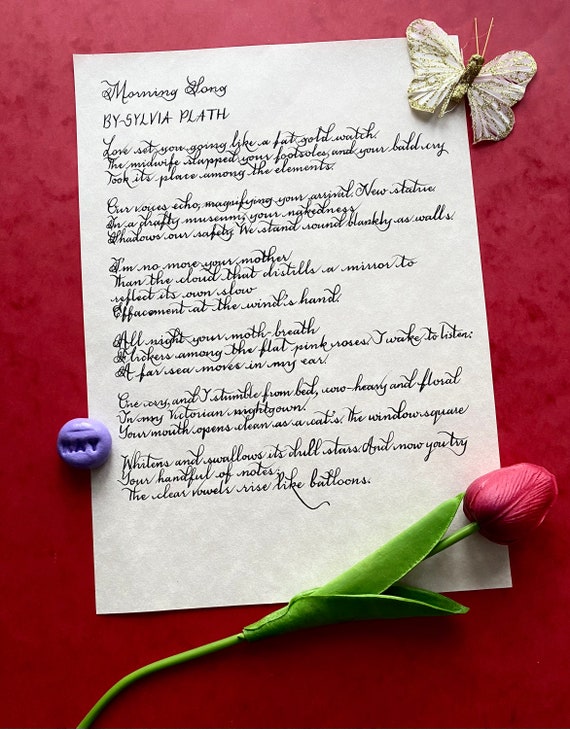 Morning Song
BY SYLVIA PLATH
Love set you going like a fat gold watch.
The midwife slapped your footsoles, and your bald cry
Took its place among the elements.
Our voices echo, magnifying your arrival. New statue.
In a drafty museum, your nakedness
Shadows our safety. We stand round blankly as walls.
I'm no more your mother
Than the cloud that distills a mirror to
reflect its own slow
Effacement at the wind's hand.
All night your moth-breath
Flickers among the flat pink roses. I wake to listen:
A far sea moves in my ear.
One cry, and I stumble from bed, cow-heavy and floral
In my Victorian nightgown.
Your mouth opens clean as a cat's. The window square
Whitens and swallows its dull stars. And now you try
Your handful of notes;
The clear vowels rise like balloons.